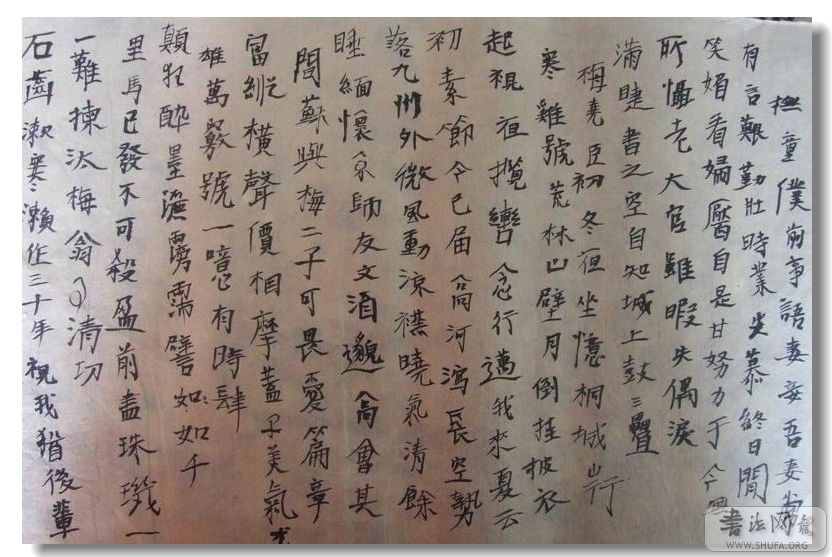 撫童僕前事語妻妾吾妻常
有言艱勤壯時業安慕終日閒
笑媚看婦靨自是甘努力于今無
所懾老大官雖暇失偶淚
滿睫書之空自知城上鼓三疊
梅堯臣初冬夜坐憶桐城山行
寒雞號荒林山壁月倒挂披衣
起視夜攬轡念行邁我來夏云
初素節今已届高河瀉長空勢
落九州外微風動涼襟曉氣清餘
睡緬懷京師友文酒邈高會其
間蘇與梅二子可畏愛篇章
富縱橫聲價相摩蓋子美氣尤
雄萬竅號一噫有時肆
顛狂醉墨灑霶霈譬如如千
里馬已發不可殺盈前盡珠璣一
一難揀汰梅翁事清切
石齒漱寒瀨作三十年視我猶後輩
書法网
WWW.SHUFA.ORG